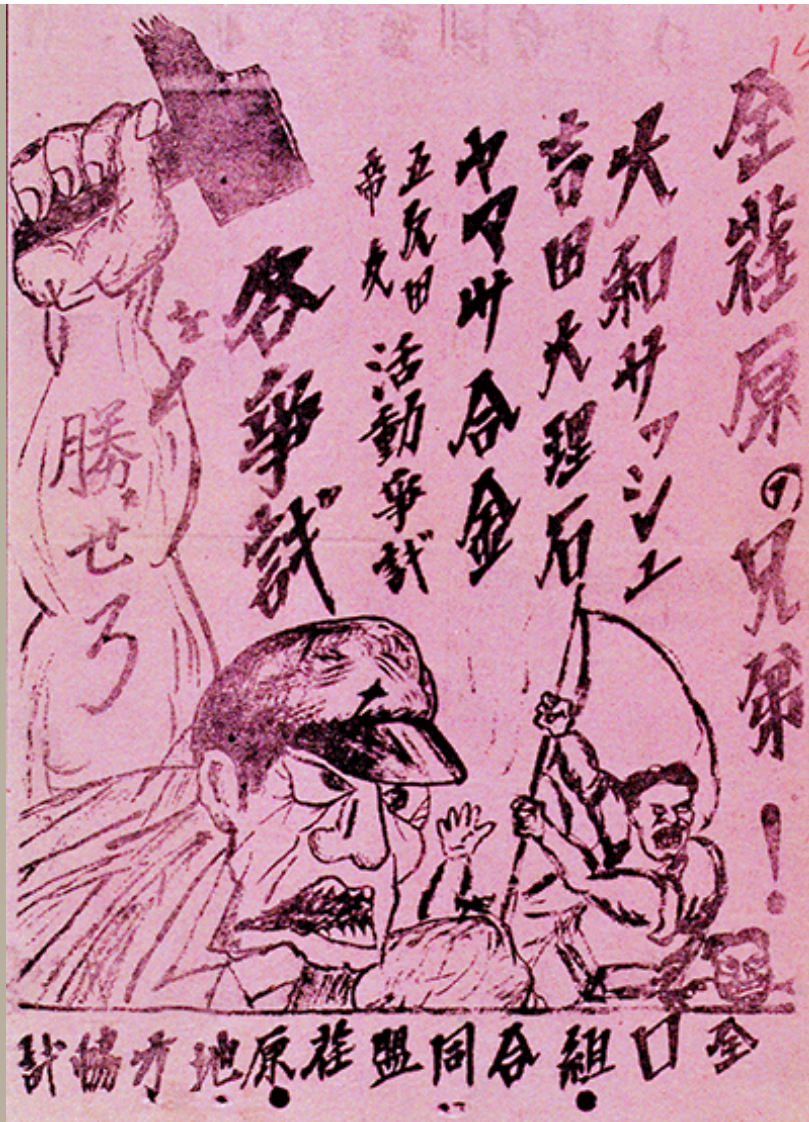 全荏原の兄弟！
大和サッシュ
吉田大理石
ヤマサ合金
五反田
帝友
活動争議
各争議
を
勝せろ
全口組合同盟荏原地方協議